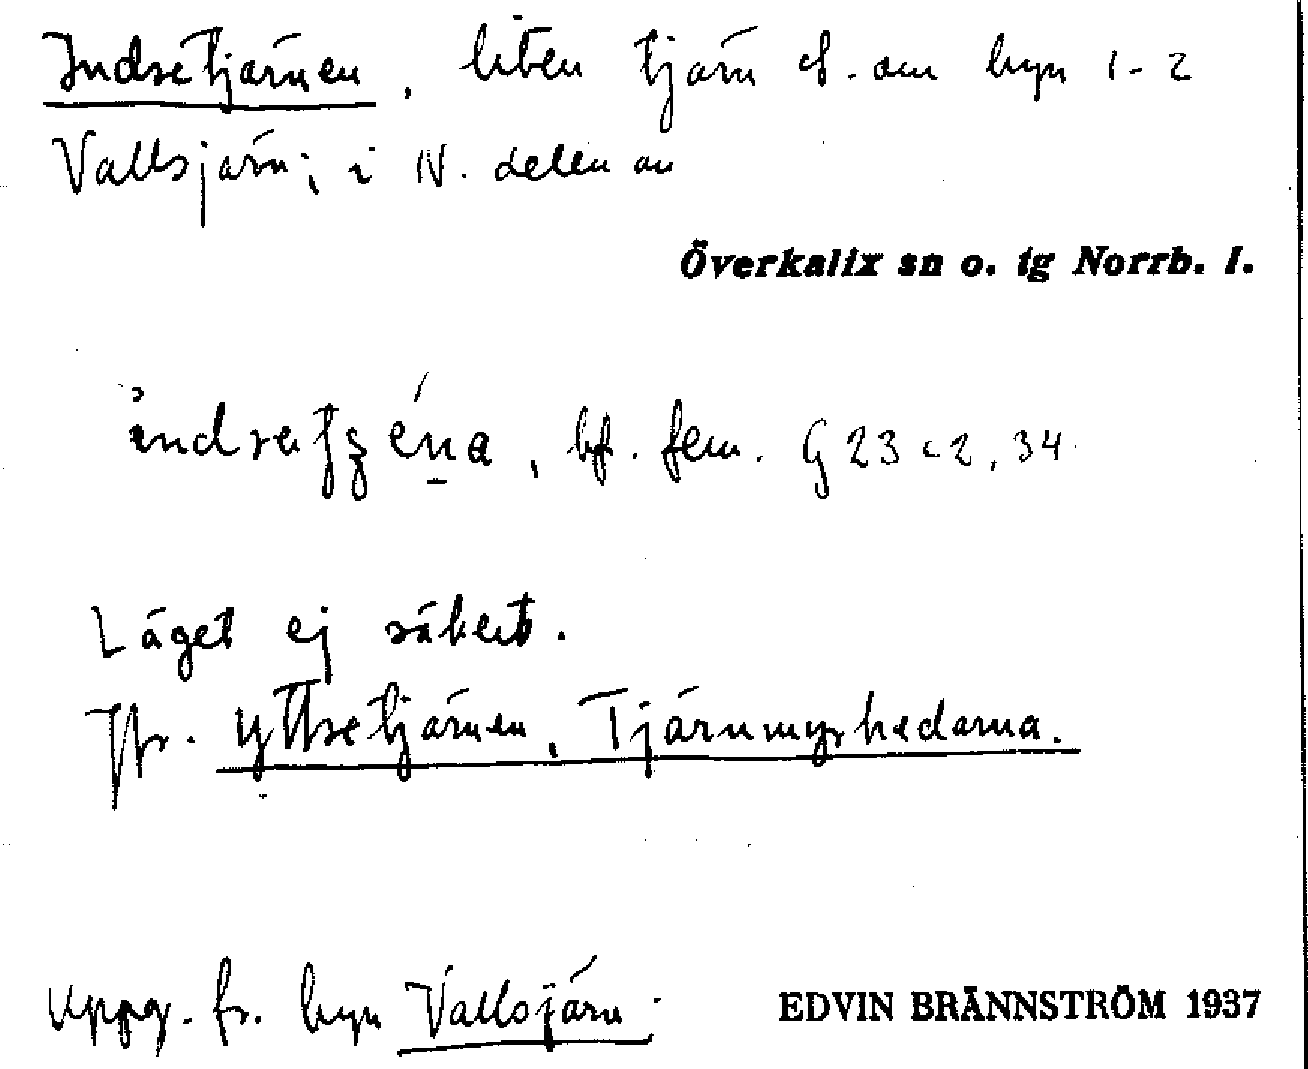 Indsetjärnen, liten tjärn S. om byn 1-2
Vallsjärn; i N. delen av
Överkalix sn o. tg Norrb. l.
bf. fem. G 23 c2, 34
Läget ej säkert.
Jfr. Yttsetjärnen, Tjärnmyrhedarna.
Uppg. fr. byn Vallsjärn.
EDVIN BRÄNNSTRÖM 1937